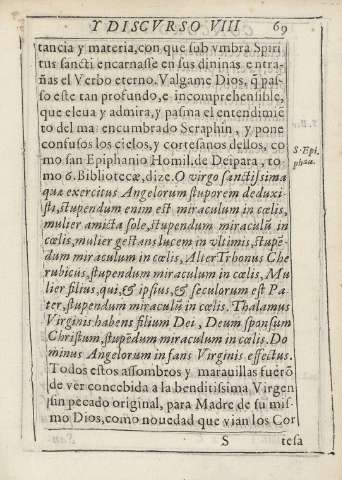 Y DISCVRSO VIII 69
tancia y materia, con que sub vmbra Spiri
tus sancti encarnasse en sus diuinas entra-
ñas el Verbo eterno. Valgame Dios, q̃ pas-
so este tan profundo, e incomprehensible,
que eleua y admira, y pasma el entendimiẽ
to del mas encumbrado Seraphin, y pone
confusos los cielos, y cortesanos dellos, co
mo san Epiphanio Homil. de Deipara, to
mo 6. Bibliotecæ, dize. O virgo sanctissima
qua exercitus Angelorum stuporem deduxi-
sti, stupendum enim est miraculum in cœlis,
mulier amicta sole, stupendum miraculũ in
cœlis, mulier gestans lucem in vlnis, stupẽ-
dum miraculum in cœlis, Alter Trhonus Che
rubicus, stupendum miraculum in cœlis, Mu
lier filius, qui, & ipsius, & seculorum est Pa
ter, stupendum miraculũ in cœlis. Thalamus
Virginis habens filium Dei, Deum sponsum
Christum, stupẽdum miraculum in cœlis. Do
minus Angelorum infans Virginis effectus.
Todos estos assombros y marauillas fuerõ
de ver concebida a la benditissima Virgen
sin pecado original, para Madre de su mis-
mo Dios, como nouedad que vian los Cor
S tesa
S. Epi.
phan.